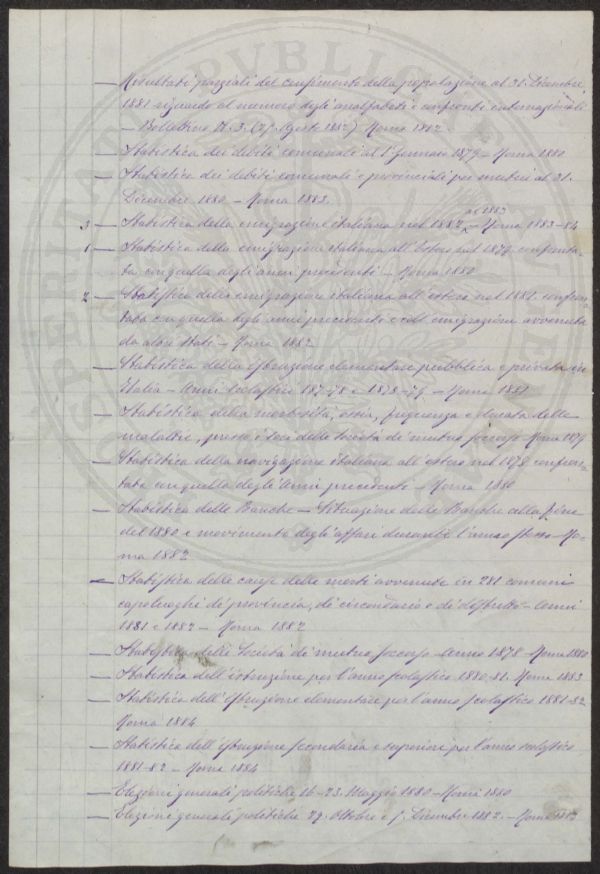 — Risultati parziali del censimento della popolazione al 31. Dicembre
1881 riguardo al numero degli analfabeti e confronti internazionali
— Bollettino N. 3. (27 Agosto 1882) Roma 1882.
— Statistica dei debiti comunali al 1° Gennaio 1879 – Roma 1880
— Statistica dei debiti comunali e provinciali per mutui al 31.
Dicembre 1880 – Roma 1882.
al 1883
3 — Statistica della emigrazione italiana nel 1882 – Roma 1883-84
1 — Statistica della emigrazione italiana all'Estero nel 1879 confronta-
ta con quella degli anni precedenti – Roma 1880
2 — Statistica della emigrazione italiana all'estero nel 1881 confron-
tata con quella degli anni precedenti e coll'emigrazione avvenuta
da altri Stati – Roma 1882
— Statistica della istruzione elementare pubblica e privata in
Italia – Anni scolastici 1877-78 e 1878-79 – Roma 1881
— Statistica della morbosità, ossia, frequenza e durata delle
malattie, presso i soci delle Società di mutuo soccorso Roma 1879
— Statistica della navigazione italiana all'estero nel 1878 confron-
tata con quella degli Anni precedenti – Roma 1880
— Statistica delle Banche – Situazione delle Banche alla fine
del 1880 e movimento degli affari durante l'anno stesso – Ro-
ma 1882
— Statistica delle cause delle morti avvenute in 281 comuni
capoluoghi di provincia, di circondario e di distretto – Anni
1881 e 1882 – Roma 1882
— Statistica delle Società di mutuo soccorso – Anno 1878 – Roma 1880
— Statistica dell'istruzione per l'anno scolastico 1880-81. Roma 1883
— Statistica dell'istruzione elementare per l'anno scolastico 1881-82
Roma 1884
— Statistica dell'istruzione secondaria e superiore per l'anno scolastico
1881-82 – Roma 1884
— Elezioni generali politiche 16-23. Maggio 1880 – Roma 1880
— Elezioni generali politiche 29. Ottobre e 5 Novembre 1882. – Roma